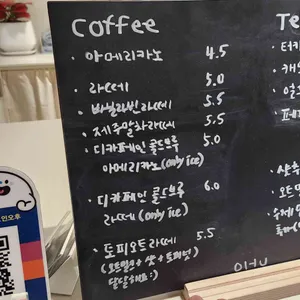 Coffee
· 아메리카노 4.5
· 라떼 5.0
· 바닐라빈라떼 5.5
· 제주말차라떼 5.5
· 디카페인 콜드브루 5.0
아메리카노(only ice)
· 디카페인 콜드브루 6.0
라떼(only ice)
· 토피오트라떼 5.5
(오트밀크+샷+토피넛
달달해요:)
Te